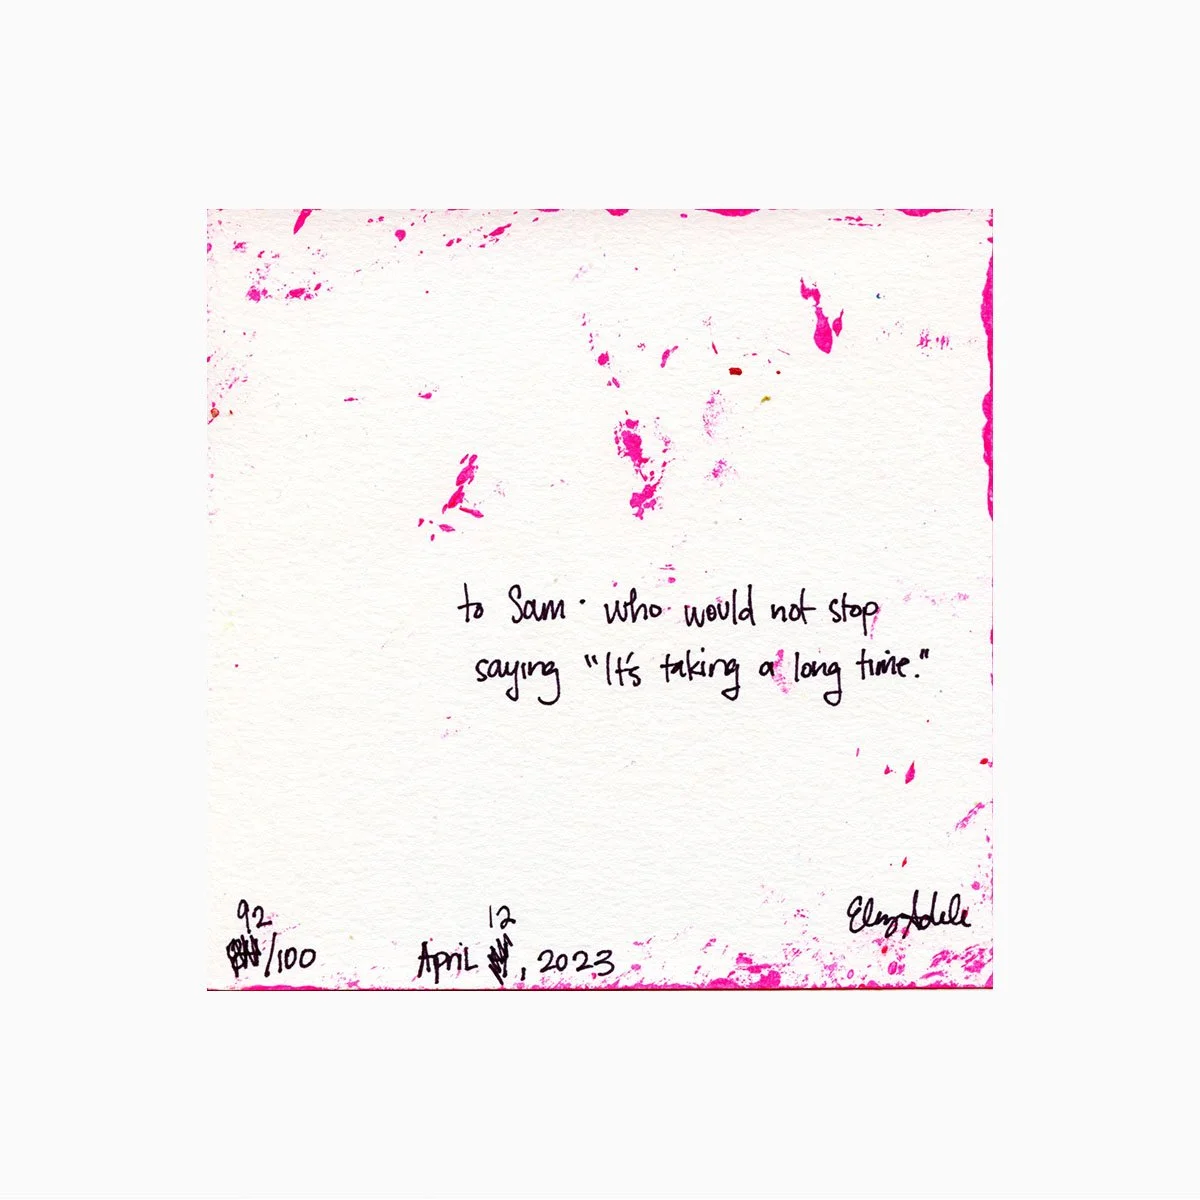 to Sam · who would not stop
saying "It's taking a long time."
92
/100
12
April , 2023